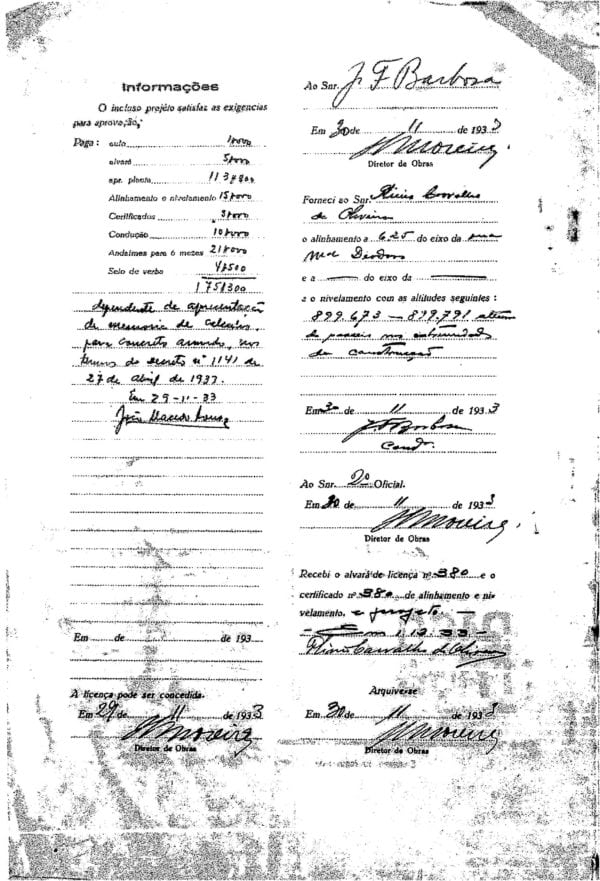 Informações
O incluso projéto satisfaz as exigencias
para aprovação,
Paga: auto
alvará
apr. planta
Alinhamento e nivelamento
Certificados
Condução
Andaimes para 6 mezes
Selo de verba 4$500
175$300
dependente de apresentação
de memoria de calculos,
para concreto armado, nos
termos do decreto nº 1141 de
27 de abril de 1933.
Em 29-11-33
Em de de 193
A licença pode ser concedida.
Em 29 de 11 de 1933
Diretor de Obras
Ao Snr. J F Barbosa
Em 30 de 11 de 1933
Diretor de Obras
Forneci ao Snr. Carvalho
de Oliveira
o alinhamento a 6.25 do eixo da rua
Deodoro
e a — do eixo da —
e o nivelamento com as altitudes seguintes:
899.673 — 899.791
da construcção
Em 30 de 11 de 1933
J F Barbosa
Ao Snr. 2º Oficial.
Em 30 de 11 de 1933
Diretor de Obras
Recebi o alvará de licença nº 380 e o
certificado nº 380 de alinhamento e ni-
velamento. e projeto —
Carvalho de Oliveira
Arquive-se
Em 30 de 11 de 1933
Diretor de Obras